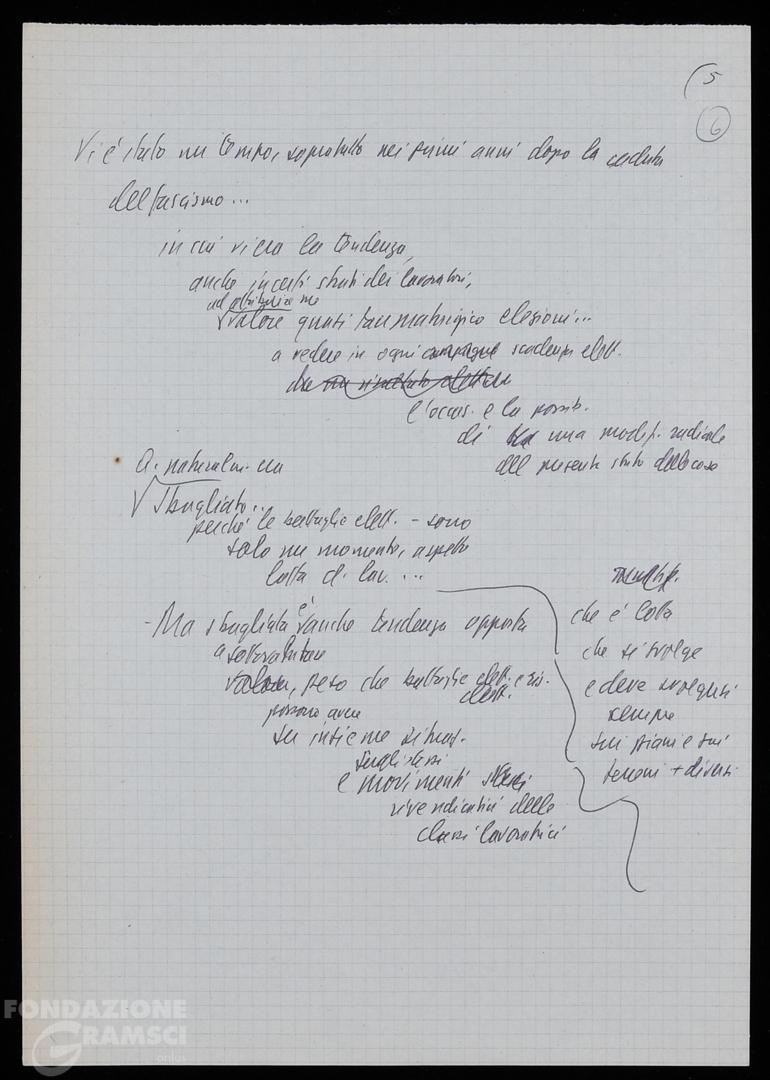 5
6
Vi è stato un tempo, sopratutto nei primi anni dopo la caduta
del fascismo...
in cui vi era la tendenza,
anche in certi strati dei lavoratori,
ad attribuire un
valore quasi taumaturgico elezioni...
a vedere in ogni campagna scadenza elett.
l'occas. e la possib.
di una modif. radicale
del presente stato delle cose
naturalm. era
Sbagliato..
perché le battaglie elett. - sono
solo un momento, aspetto
lotta di lav. ...
- Ma sbagliata è anche tendenza opposta
a sottovalutare
valore, peso che battaglie elett. e ris.
elett.
possono avere
su insieme situaz.
sugli stessi
e movimenti
rivendicativi delle
classi lavoratrici
che è lotta
che si svolge
e deve svolgersi
sempre
sui piani e sui
terreni + diversi
FONDAZIONE
GRAMSCI
onlus